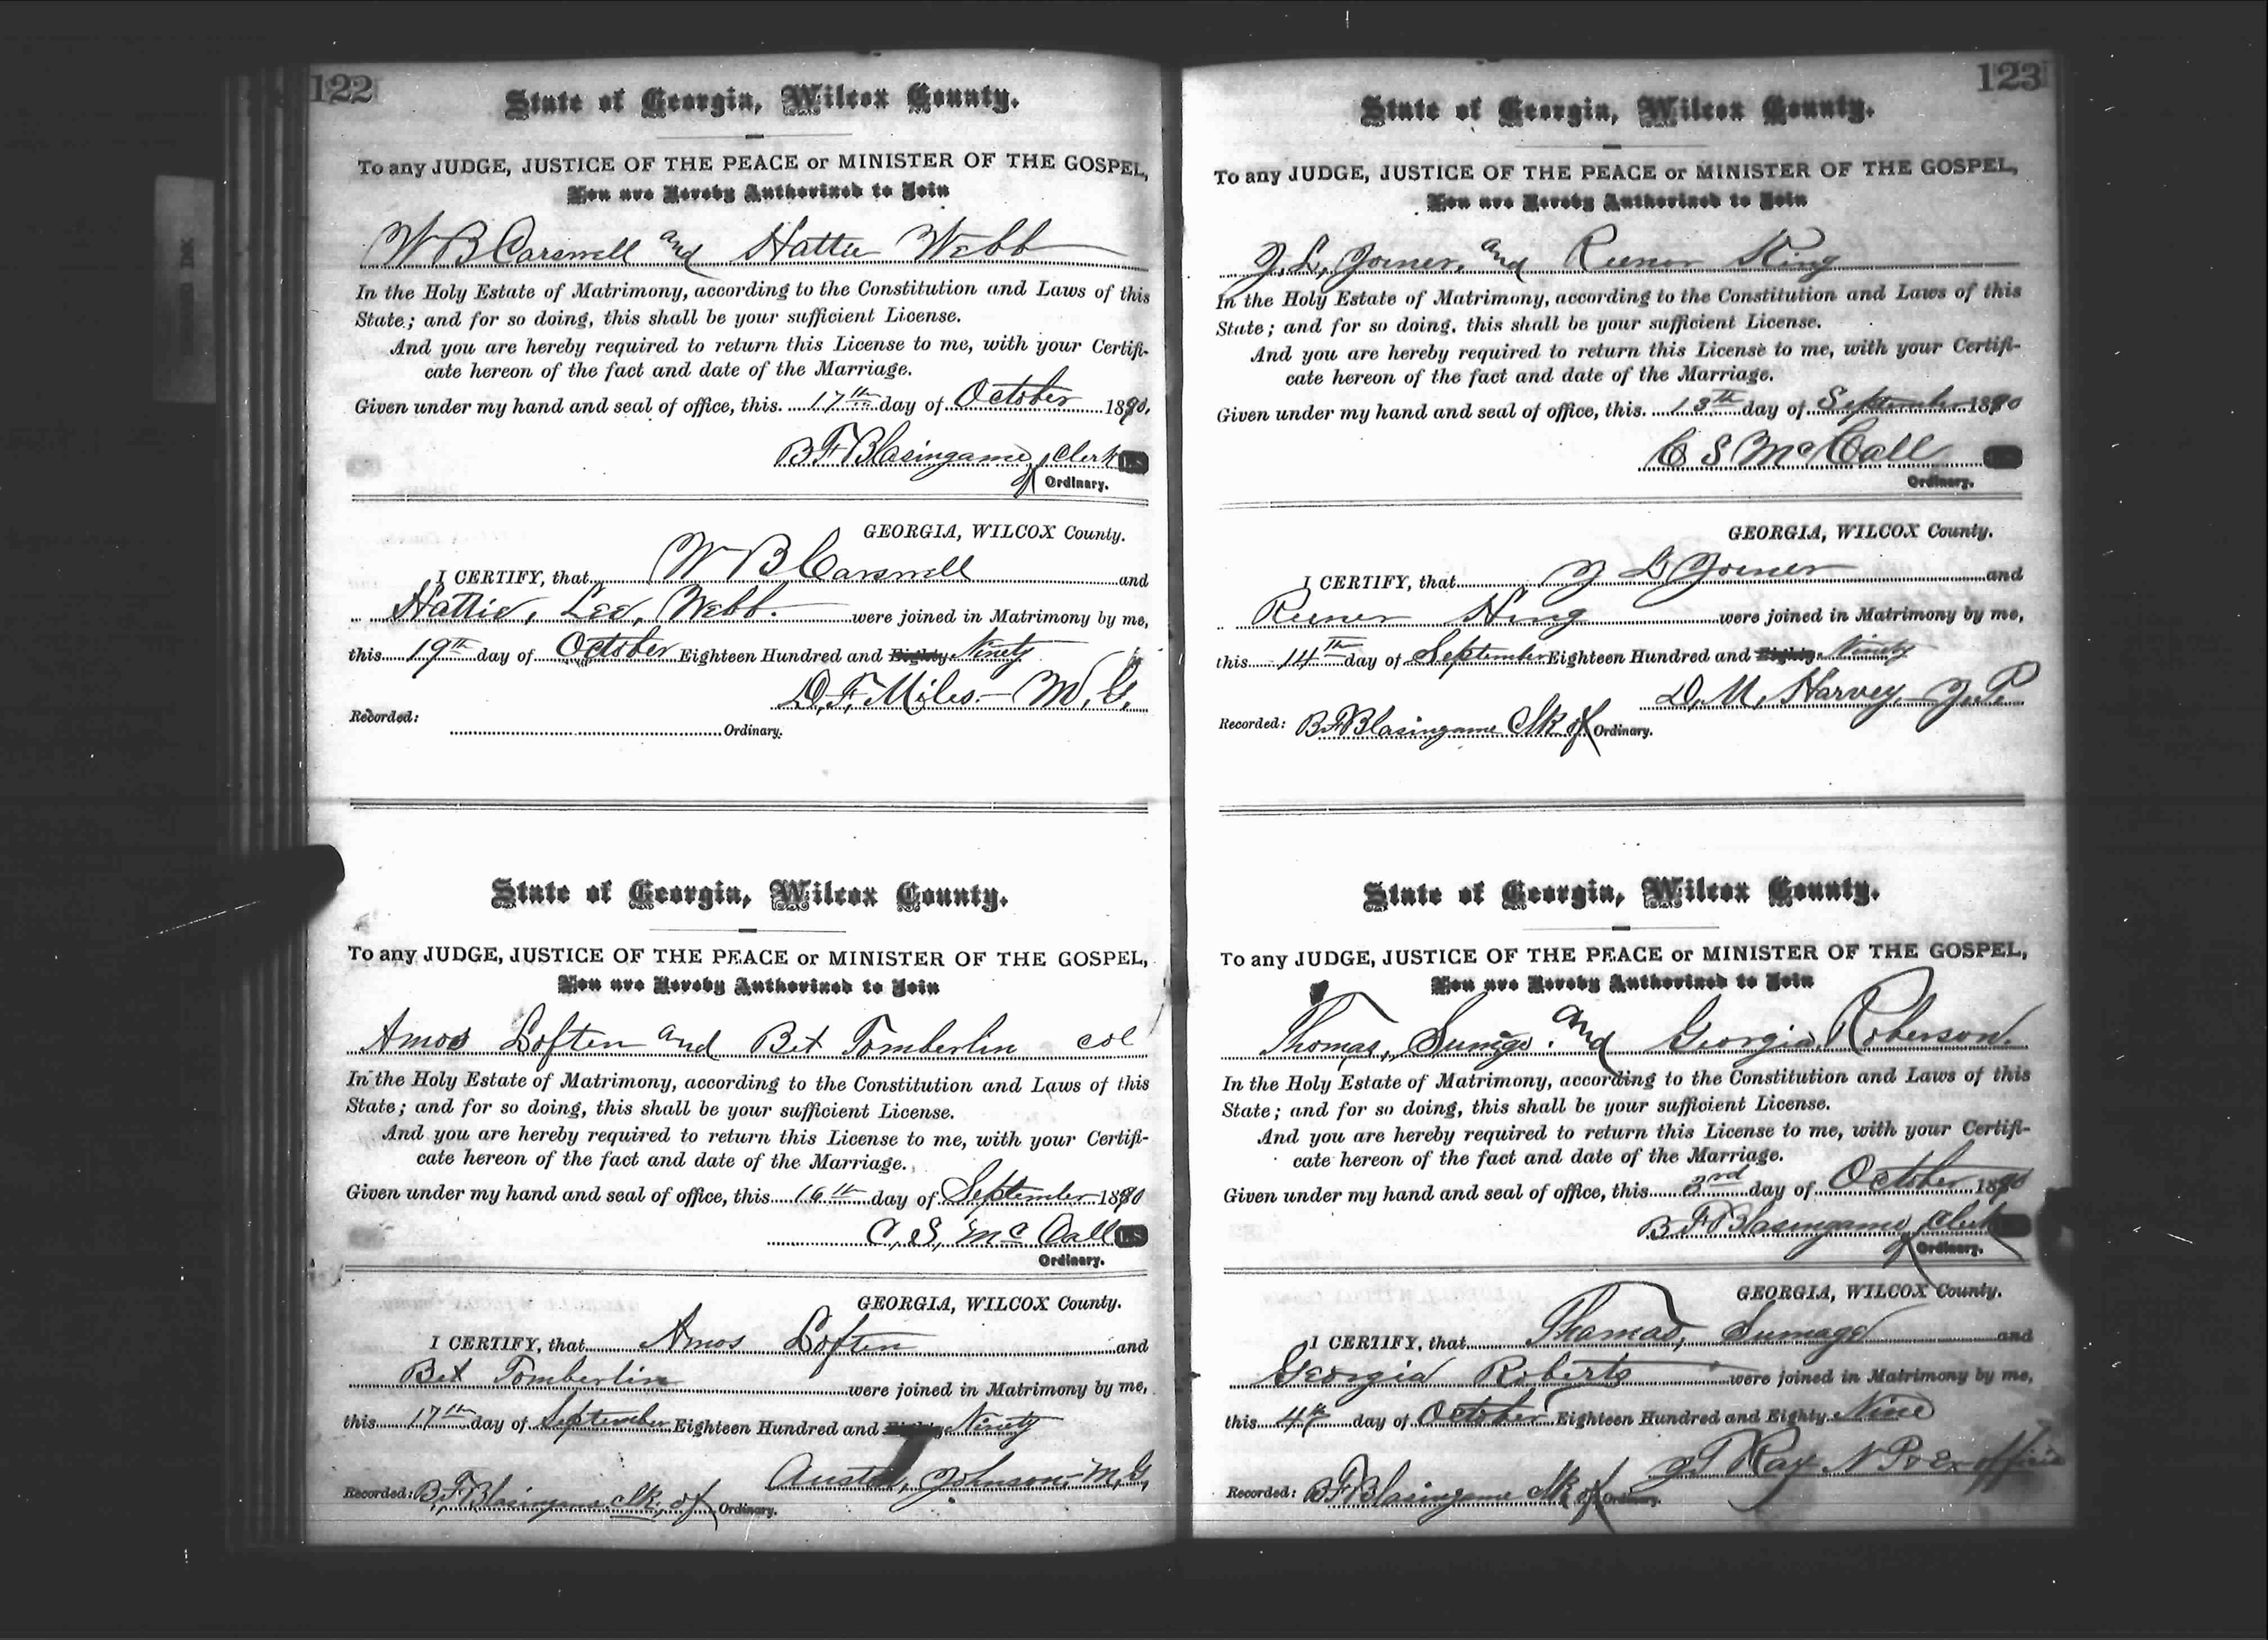 122
State of Georgia, Wilcox County.
To any JUDGE, JUSTICE OF THE PEACE or MINISTER OF THE GOSPEL,
You are Hereby Authorized to Join
W B Carswell and Hattie Webb
In the Holy Estate of Matrimony, according to the Constitution and Laws of this
State; and for so doing, this shall be your sufficient License.
And you are hereby required to return this License to me, with your Certifi-
cate hereon of the fact and date of the Marriage.
Given under my hand and seal of office, this 17th day of October 1890.
B F Blasingame, Clerk LS
of Ordinary.
GEORGIA, WILCOX County.
I CERTIFY, that W B Carswell and
Hattie, Lee, Webb. were joined in Matrimony by me,
this 19th day of October Eighteen Hundred and Eighty Ninety
D. F. Miles - M. G.
Recorded:
Ordinary.
State of Georgia, Wilcox County.
To any JUDGE, JUSTICE OF THE PEACE or MINISTER OF THE GOSPEL,
You are Hereby Authorized to Join
Amos Loften and Bet Tomberlin col
In the Holy Estate of Matrimony, according to the Constitution and Laws of this
State; and for so doing, this shall be your sufficient License.
And you are hereby required to return this License to me, with your Certifi-
cate hereon of the fact and date of the Marriage.
Given under my hand and seal of office, this 16th day of September 1890
C. S. McCall LS
Ordinary.
GEORGIA, WILCOX County.
I CERTIFY, that Amos Loften and
Bet Tomberlin were joined in Matrimony by me,
this 17th day of September Eighteen Hundred and Eighty Ninety
Johnson - M. G.
Recorded: B. F. Blasingame Clk. of Ordinary.
123
State of Georgia, Wilcox County.
To any JUDGE, JUSTICE OF THE PEACE or MINISTER OF THE GOSPEL,
You are Hereby Authorized to Join
J. L. Joiner, and King
In the Holy Estate of Matrimony, according to the Constitution and Laws of this
State; and for so doing, this shall be your sufficient License.
And you are hereby required to return this License to me, with your Certifi-
cate hereon of the fact and date of the Marriage.
Given under my hand and seal of office, this 13th day of September 1890
C S McCall
Ordinary.
GEORGIA, WILCOX County.
I CERTIFY, that J L Joiner and
King were joined in Matrimony by me,
this 14th day of September Eighteen Hundred and Eighty Ninety
D. M. Harvey - J. P.
Recorded: B F Blasingame Clk of Ordinary.
State of Georgia, Wilcox County.
To any JUDGE, JUSTICE OF THE PEACE or MINISTER OF THE GOSPEL,
You are Hereby Authorized to Join
Thomas, and Georgia Roberson.
In the Holy Estate of Matrimony, according to the Constitution and Laws of this
State; and for so doing, this shall be your sufficient License.
And you are hereby required to return this License to me, with your Certifi-
cate hereon of the fact and date of the Marriage.
Given under my hand and seal of office, this 3rd day of October 1890
B F Blasingame, Clerk
of Ordinary.
GEORGIA, WILCOX County.
I CERTIFY, that Thomas, Sumage and
Georgia Roberts were joined in Matrimony by me,
this 4th day of October Eighteen Hundred and Eighty Nine
Ray N P & Ex officio
Recorded: B F Blasingame Clk of Ordinary.